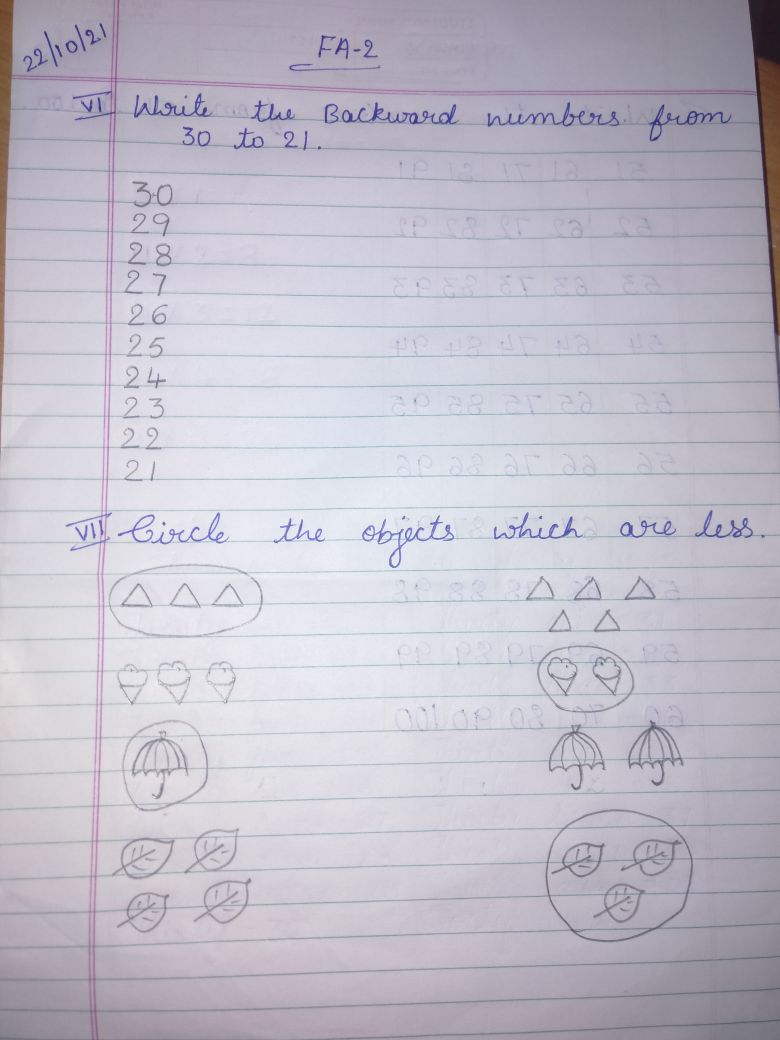 22/10/21
FA-2
VI Write the Backward numbers from
30 to 21.
30
29
28
27
26
25
24
23
22
21
VII Circle the objects which are less.